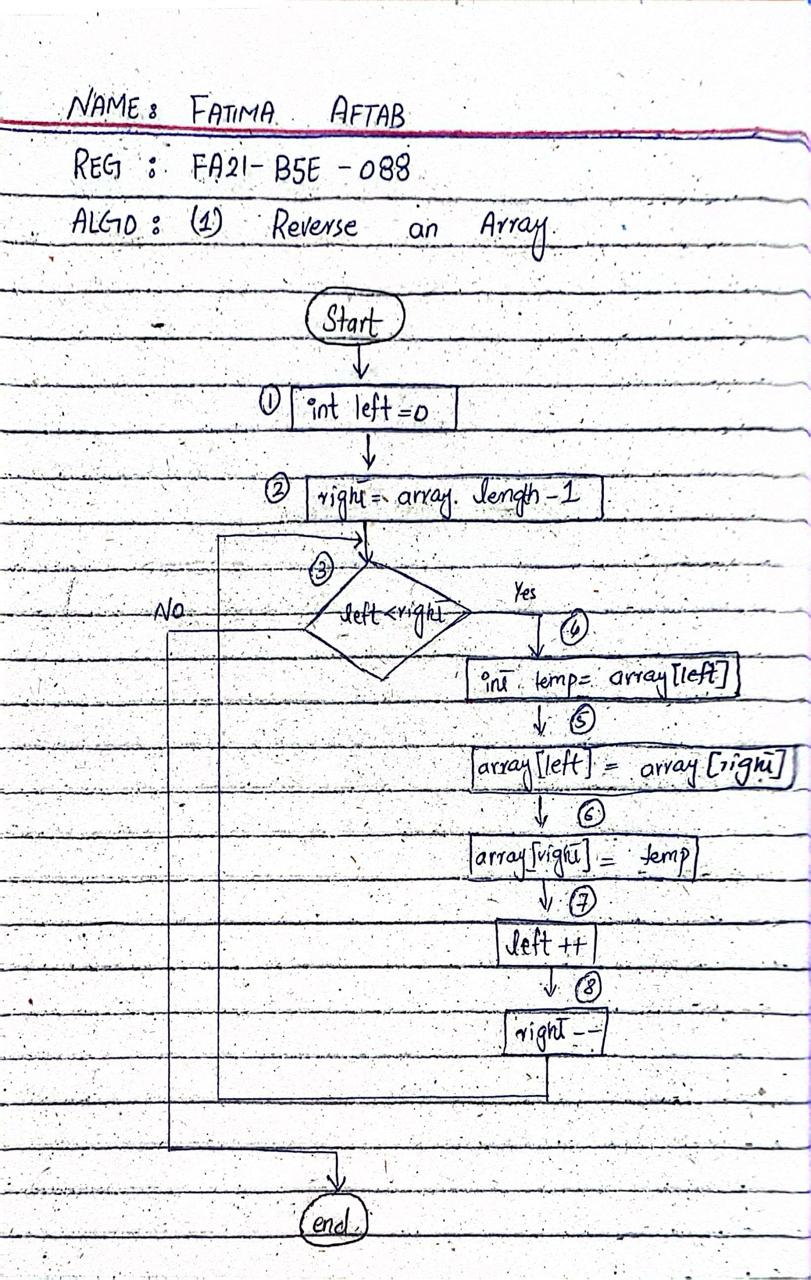 NAME: FATIMA AFTAB
REG : FA21-BSE-088
ALGO: (1) Reverse an Array.
Start
① int left=0
② right= array.length-1
③
left<right
Yes
NO
④
int temp= array[left]
⑤
array[left] = array[right]
⑥
array[right] = temp
⑦
left ++
⑧
right --
end